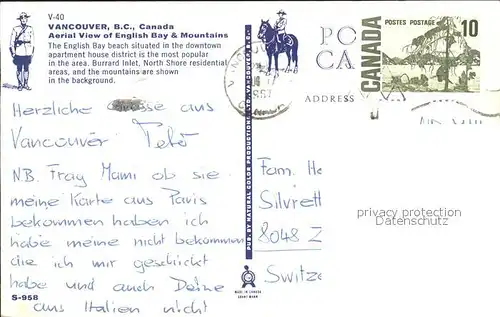 V-40
VANCOUVER, B.C., Canada
Aerial View of English Bay & Mountains
The English Bay beach situated in the downtown
apartment house district is the most popular
in the area. Burrard Inlet, North Shore residential
areas, and the mountains are shown
in the background.
Herzliche Grüsse aus
Vancouver Peter
N.B. Frag Mami ob sie
meine Karte aus Paris
bekommen haben ich
habe meine nicht bekommen
die ich mir geschickt
habe und auch Deine
aus Italien nicht
S-958
PUB BY NATURAL COLOR PRODUCTIONS VANCOUVER B.C.
MADE IN CANADA
PO
CA
ADDRESS
CANADA
POSTES POSTAGE
10
Fam. He
Silvrett
8048 Z
Switze
privacy protection
Datenschutz